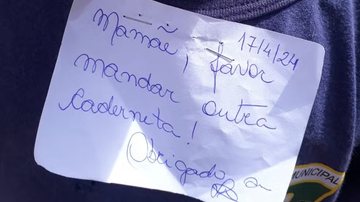 17/4/24
Mamãe! favor
mandar outra
Caderneta!
Obrigado
MUNICIPAL